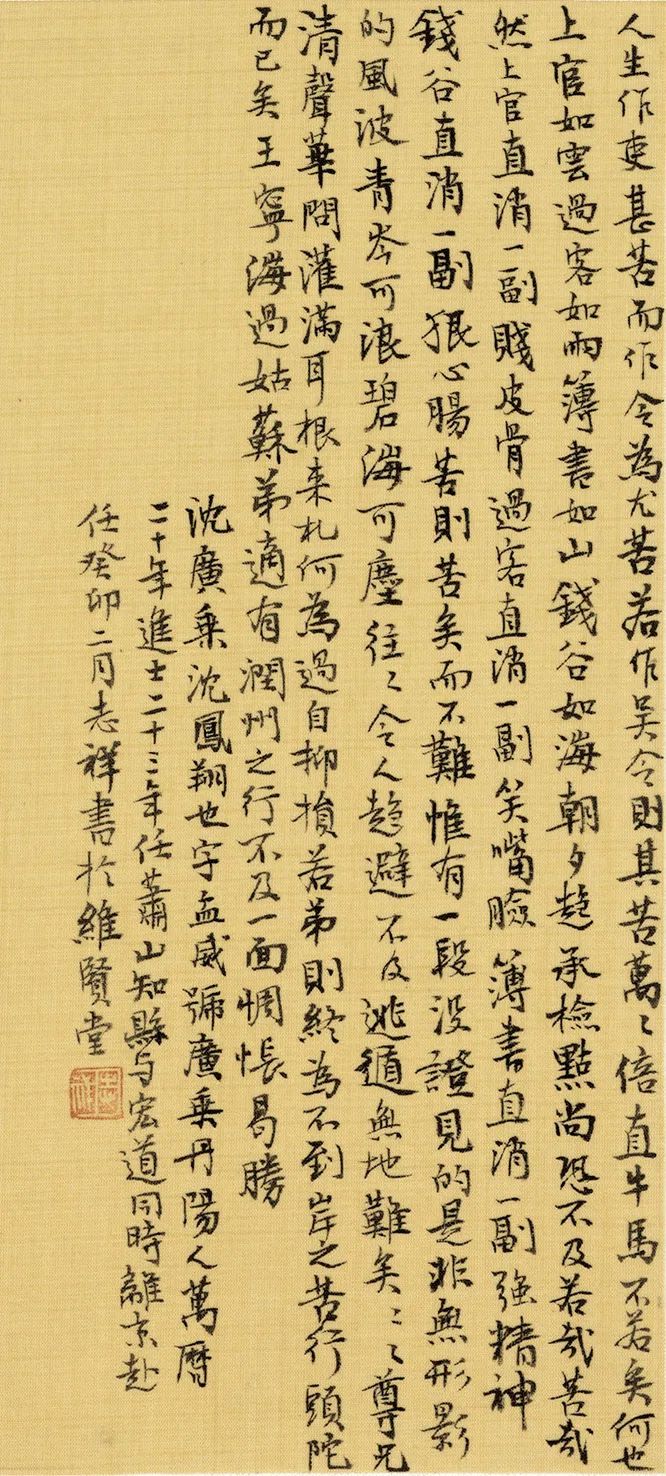 人生作吏甚苦而作令為尤苦若作吴令則其苦萬〻倍直牛馬不若矣何也
上官如雲過客如雨簿書如山錢谷如海朝夕趍承檢點尚恐不及苦哉苦哉
然上官直消一副賤皮骨過客直消一副笑嘴臉簿書直消一副强精神
錢谷直消一副狠心腸苦則苦矣而不難惟有一段没證見的是非無形影
的風波青岑可浪碧海可塵往〻令人趍避不及逃遁無地難矣〻〻尊兄
清聲華問灌滿耳根来札何為過自抑損若弟則終為不到岸之苦行頭陀
而已矣王寧海過姑蘇弟適有潤州之行不及一面惆悵曷勝
沈廣乗沈鳳翔也字孟威號廣乗丹陽人萬曆
二十年進士二十三年任蕭山知縣与宏道同時離京赴
任癸卯二月志祥書於維賢堂